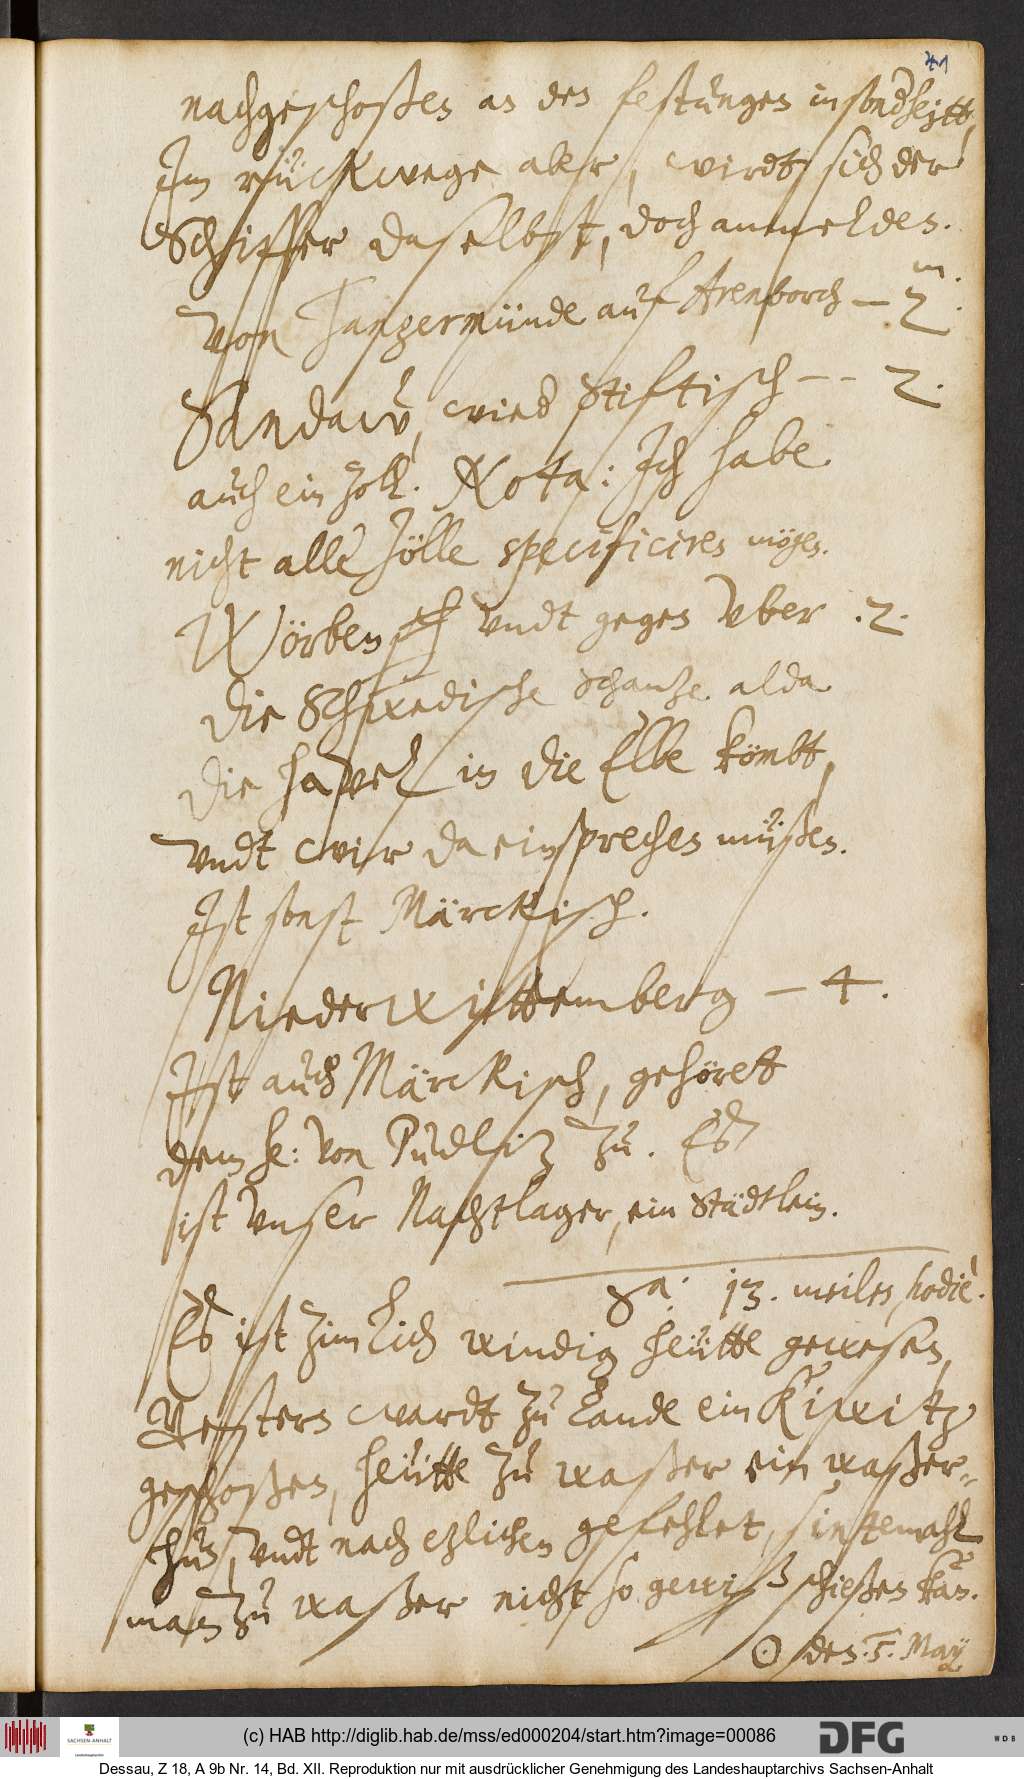 41
nachgeschoßen an den festungen in sonderheitt,
Im rückwege aber, wirdt sich der
Schiffer daselbst, doch anmelden.
m.
Von Tangermünde auf Arenborch — 2.
Sandaw, wied Stiftisch - - 2.
auch ein zoll. Nota: Ich habe
nicht alle Zölle specificiren mögen.
Wörben undt gegen Vber .2.
die Schwedische Schantze alda
die Havel in die Elbe kömbt,
Vndt wir da einsprechen müßen.
Ist sonst Märckisch.
Niederwittemberg — 4.
Ist auch Märckisch, gehöret
dem h: von Pudlitz zu. Es
ist vnser Nachtlager, ein Städtlein.
Sa: 13. meilen, hodie.
Es ist zimlich windig heütte gewesen,
Gestern wardt zu Lande ein Kiwitz
geschoßen, heütte zu waßer ein waßer-
hun, vndt nach ezlichen gefehlet, sintemahl
man zu waßer nicht so gewiß schießen kan.
☉ den .5. May
(c) HAB http://diglib.hab.de/mss/ed000204/start.htm?image=00086
SACHSEN-ANHALT
DFG
WDB
Dessau, Z 18, A 9b Nr. 14, Bd. XII. Reproduktion nur mit ausdrücklicher Genehmigung des Landeshauptarchivs Sachsen-Anhalt